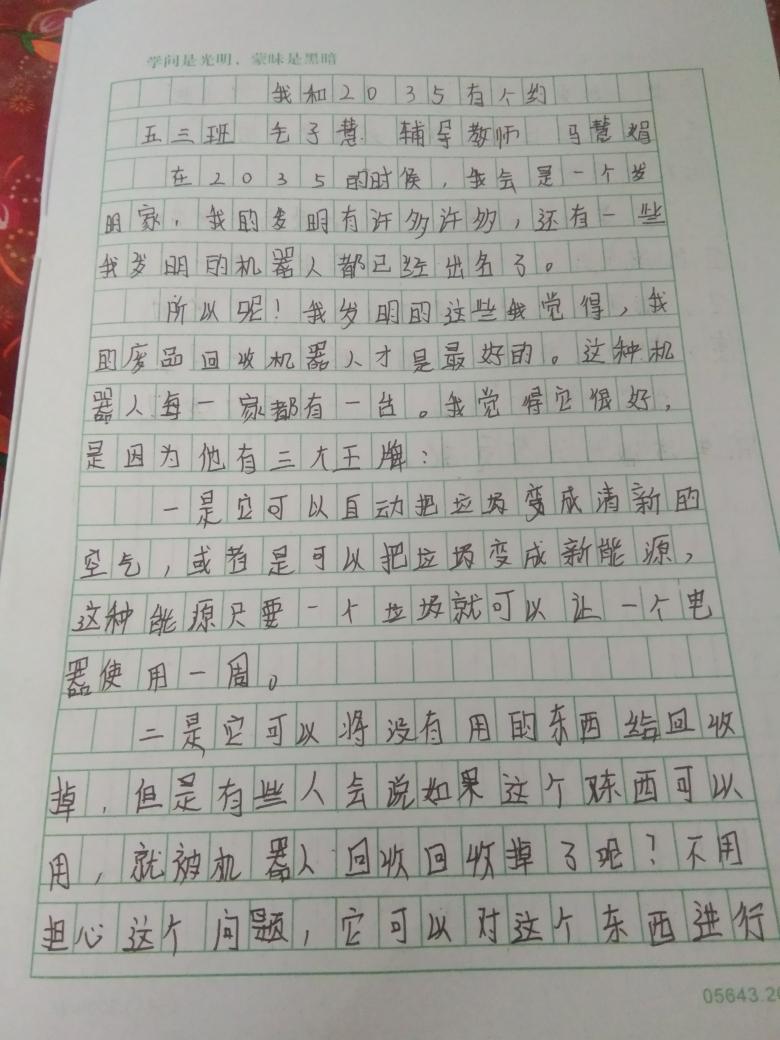 学问是光明，蒙昧是黑暗
我和2035有个约
五三班 乞子慧 辅导教师 马慧娟
在2035的时候，我会是一个发
明家，我的发明有许多许多，还有一些
我发明的机器人都已经出名了。
所以呢！我发明的这些我觉得，我
的废品回收机器人才是最好的。这种机
器人每一家都有一台。我觉得它很好，
是因为他有三大王牌：
一是它可以自动把垃圾变成清新的
空气，或者是可以把垃圾变成新能源，
这种能源只要一个垃圾就可以让一个电
器使用一周。
二是它可以将没有用的东西给回收
掉，但是有些人会说如果这个东西可以
用，就被机器人回收回收掉了呢？不用
担心这个问题，它可以对这个东西进行
05643.20